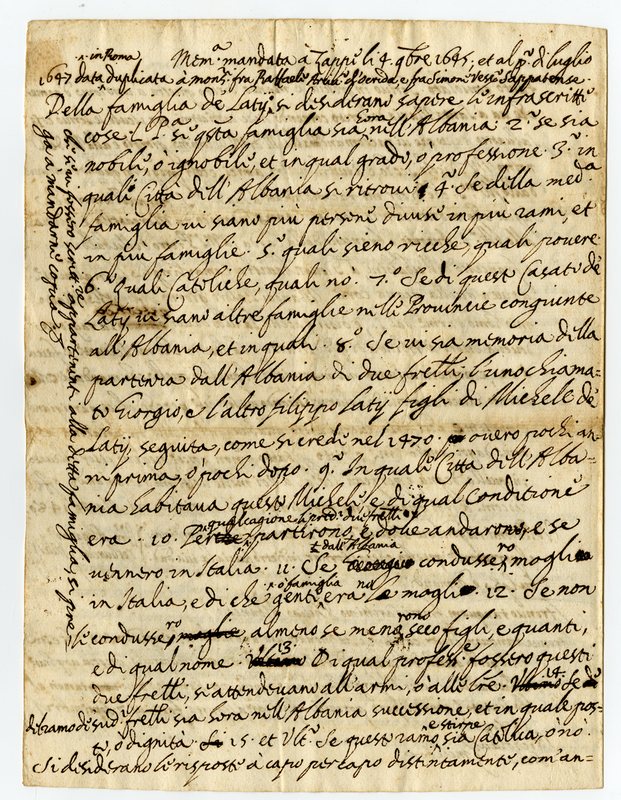 in Roma
Mem.a mandata à Zappu li 4 9bre 1645; et al p.o di luglio
1647 data duplicata à mons.r fra Raffaele d'Ocrida, e fra Simone Sappatense.
Della famiglia de Latij, si desiderano sapere le infrascritte
cose. P.a se q.sta famiglia sia hora nell'Albania. 2.o se sia
nobile, ò ignobile, et in qual grado, ò professione. 3.o in
quale Città dell'Albania si ritrovi. 4.o Se della med.a
famiglia vi siano più persone divise in più rami, et
in più famiglie. 5.o quali sieno ricche, quali povere.
6.o Quali Catoliche, quali nò. 7.o Se di questo Casato de
Latij, vi siano altre famiglie nelle Provincie congiunte
all'Albania, et in quali. 8.o Se vi sia memoria della
partenza dall'Albania di due fr'elli, l'uno chiama=
to Giorgio, e l'altro Filippo Latij figli di Michele de
Latij, seguita, come si crede nel 1470. overo pochi an=
ni prima, ò pochi dopo. 9.o In quale Città dell'Alba=
nia habitava questo Michele, e di qual conditione
era. 10. Per qual cagione li pred.i due fr'elli
partirono, e dove andarono, e se
dall'Albania
vennero in Italia. 11. Se condussero moglie
ò famiglia
in Italia, e di che gente era la moglie. 12. Se non
condussero moglie, almeno se menorono seco figli, e quanti,
e di qual nome. 13 Di qual profess.e fossero questi
due fr'elli, se attendevano all'armi, ò alle l're. 14. Se
del ramo de sud.i fr'elli sia hora nell'Albania successione, et in quale pos=
to, ò dignità. 15. et Ult.o Se questi rami, e stirpe sia Catolica, ò nò.
Si desiderano le risposte à capo per capo distintamente, com'an=
che se vi fossero scritture appartenenti alla detta famiglia, si pre=
ga a mandarne copia